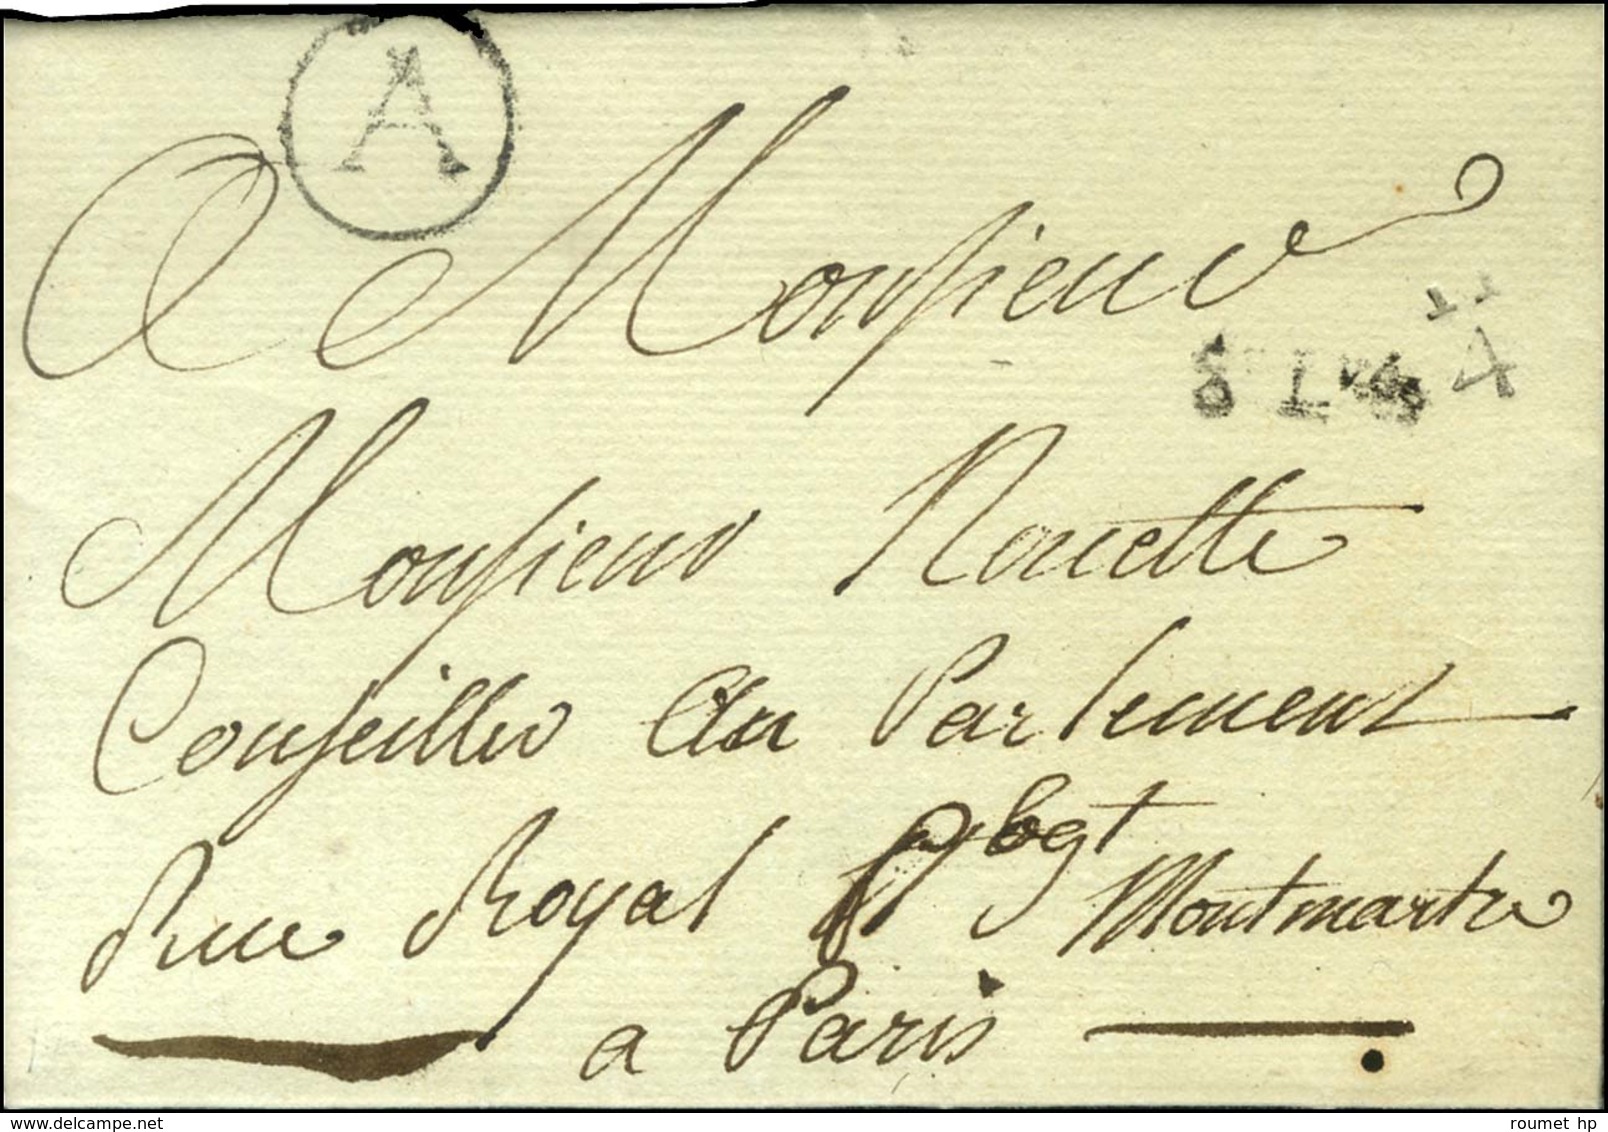 A
A Monsieur
Monsieur Nouette
Conseiller Au Parlement
Rue Royal fbgt Montmartre
a Paris
www.delcampe.net
roumet hp